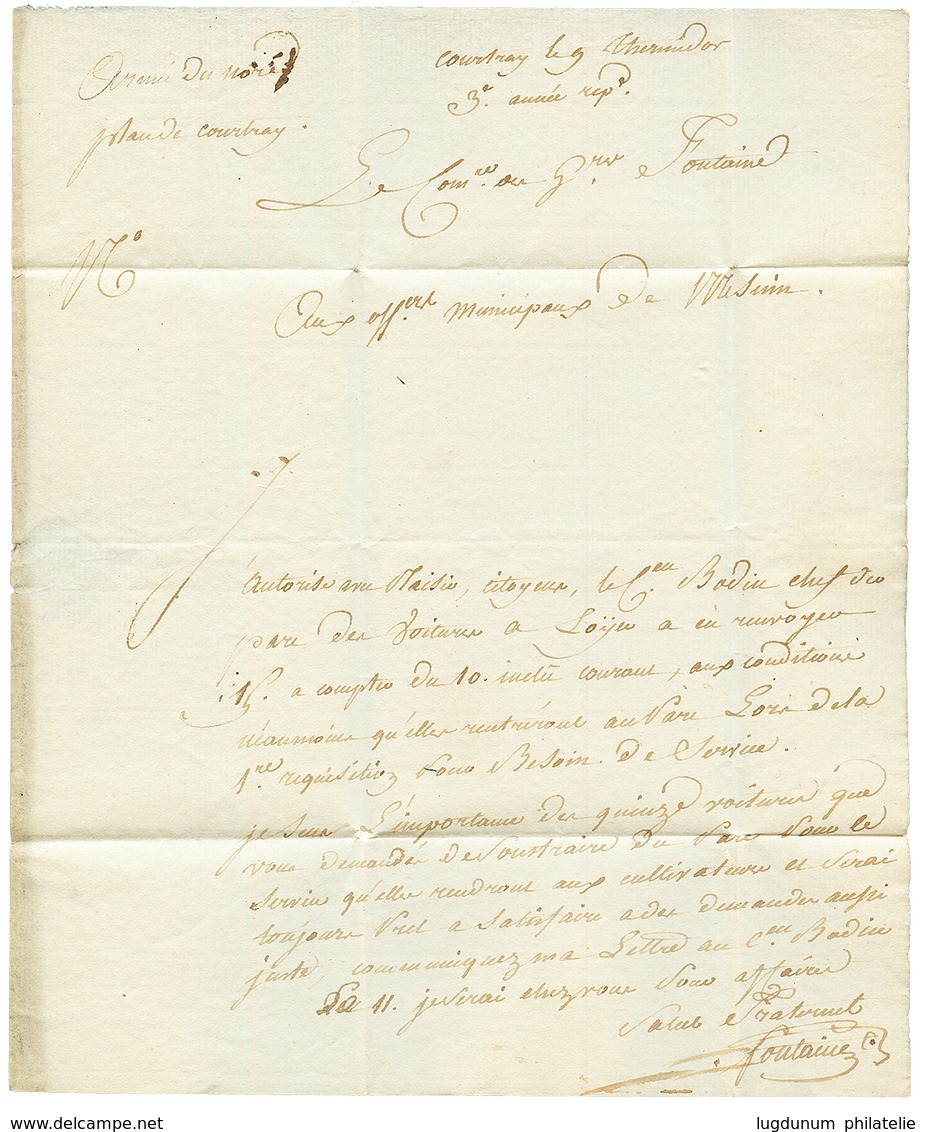 Armée du nord
place de courtray.
courtray le 9 thermidor
3e. année rep.e
Le Comre. des Gres Fontaine
No
Aux offers municipaux de Messin.
J'autorise avec Plaisir, citoyens, le Cen. Bodin chef du
parc des Voitures a à en renvoyer
15. a compter du 10. inclu courant, aux conditions
néanmoins qu'elles rentreront au Parc Lors de la
1re requisition Pour Besoin de Service.
je sens L'importance des quinze voitures que
vous demandés de Soustraire du Parc Pour le
Service qu'elles rendront aux cultivateurs et serai
toujours Pret a satisfaire a des demandes aussi
juste, communiquez ma Lettre au Cen Bodin
Le 11. je serai chez vous Pour affaires
Salut Fraternel
Fontaine
www.delcampe.net
lugdunum philatelie